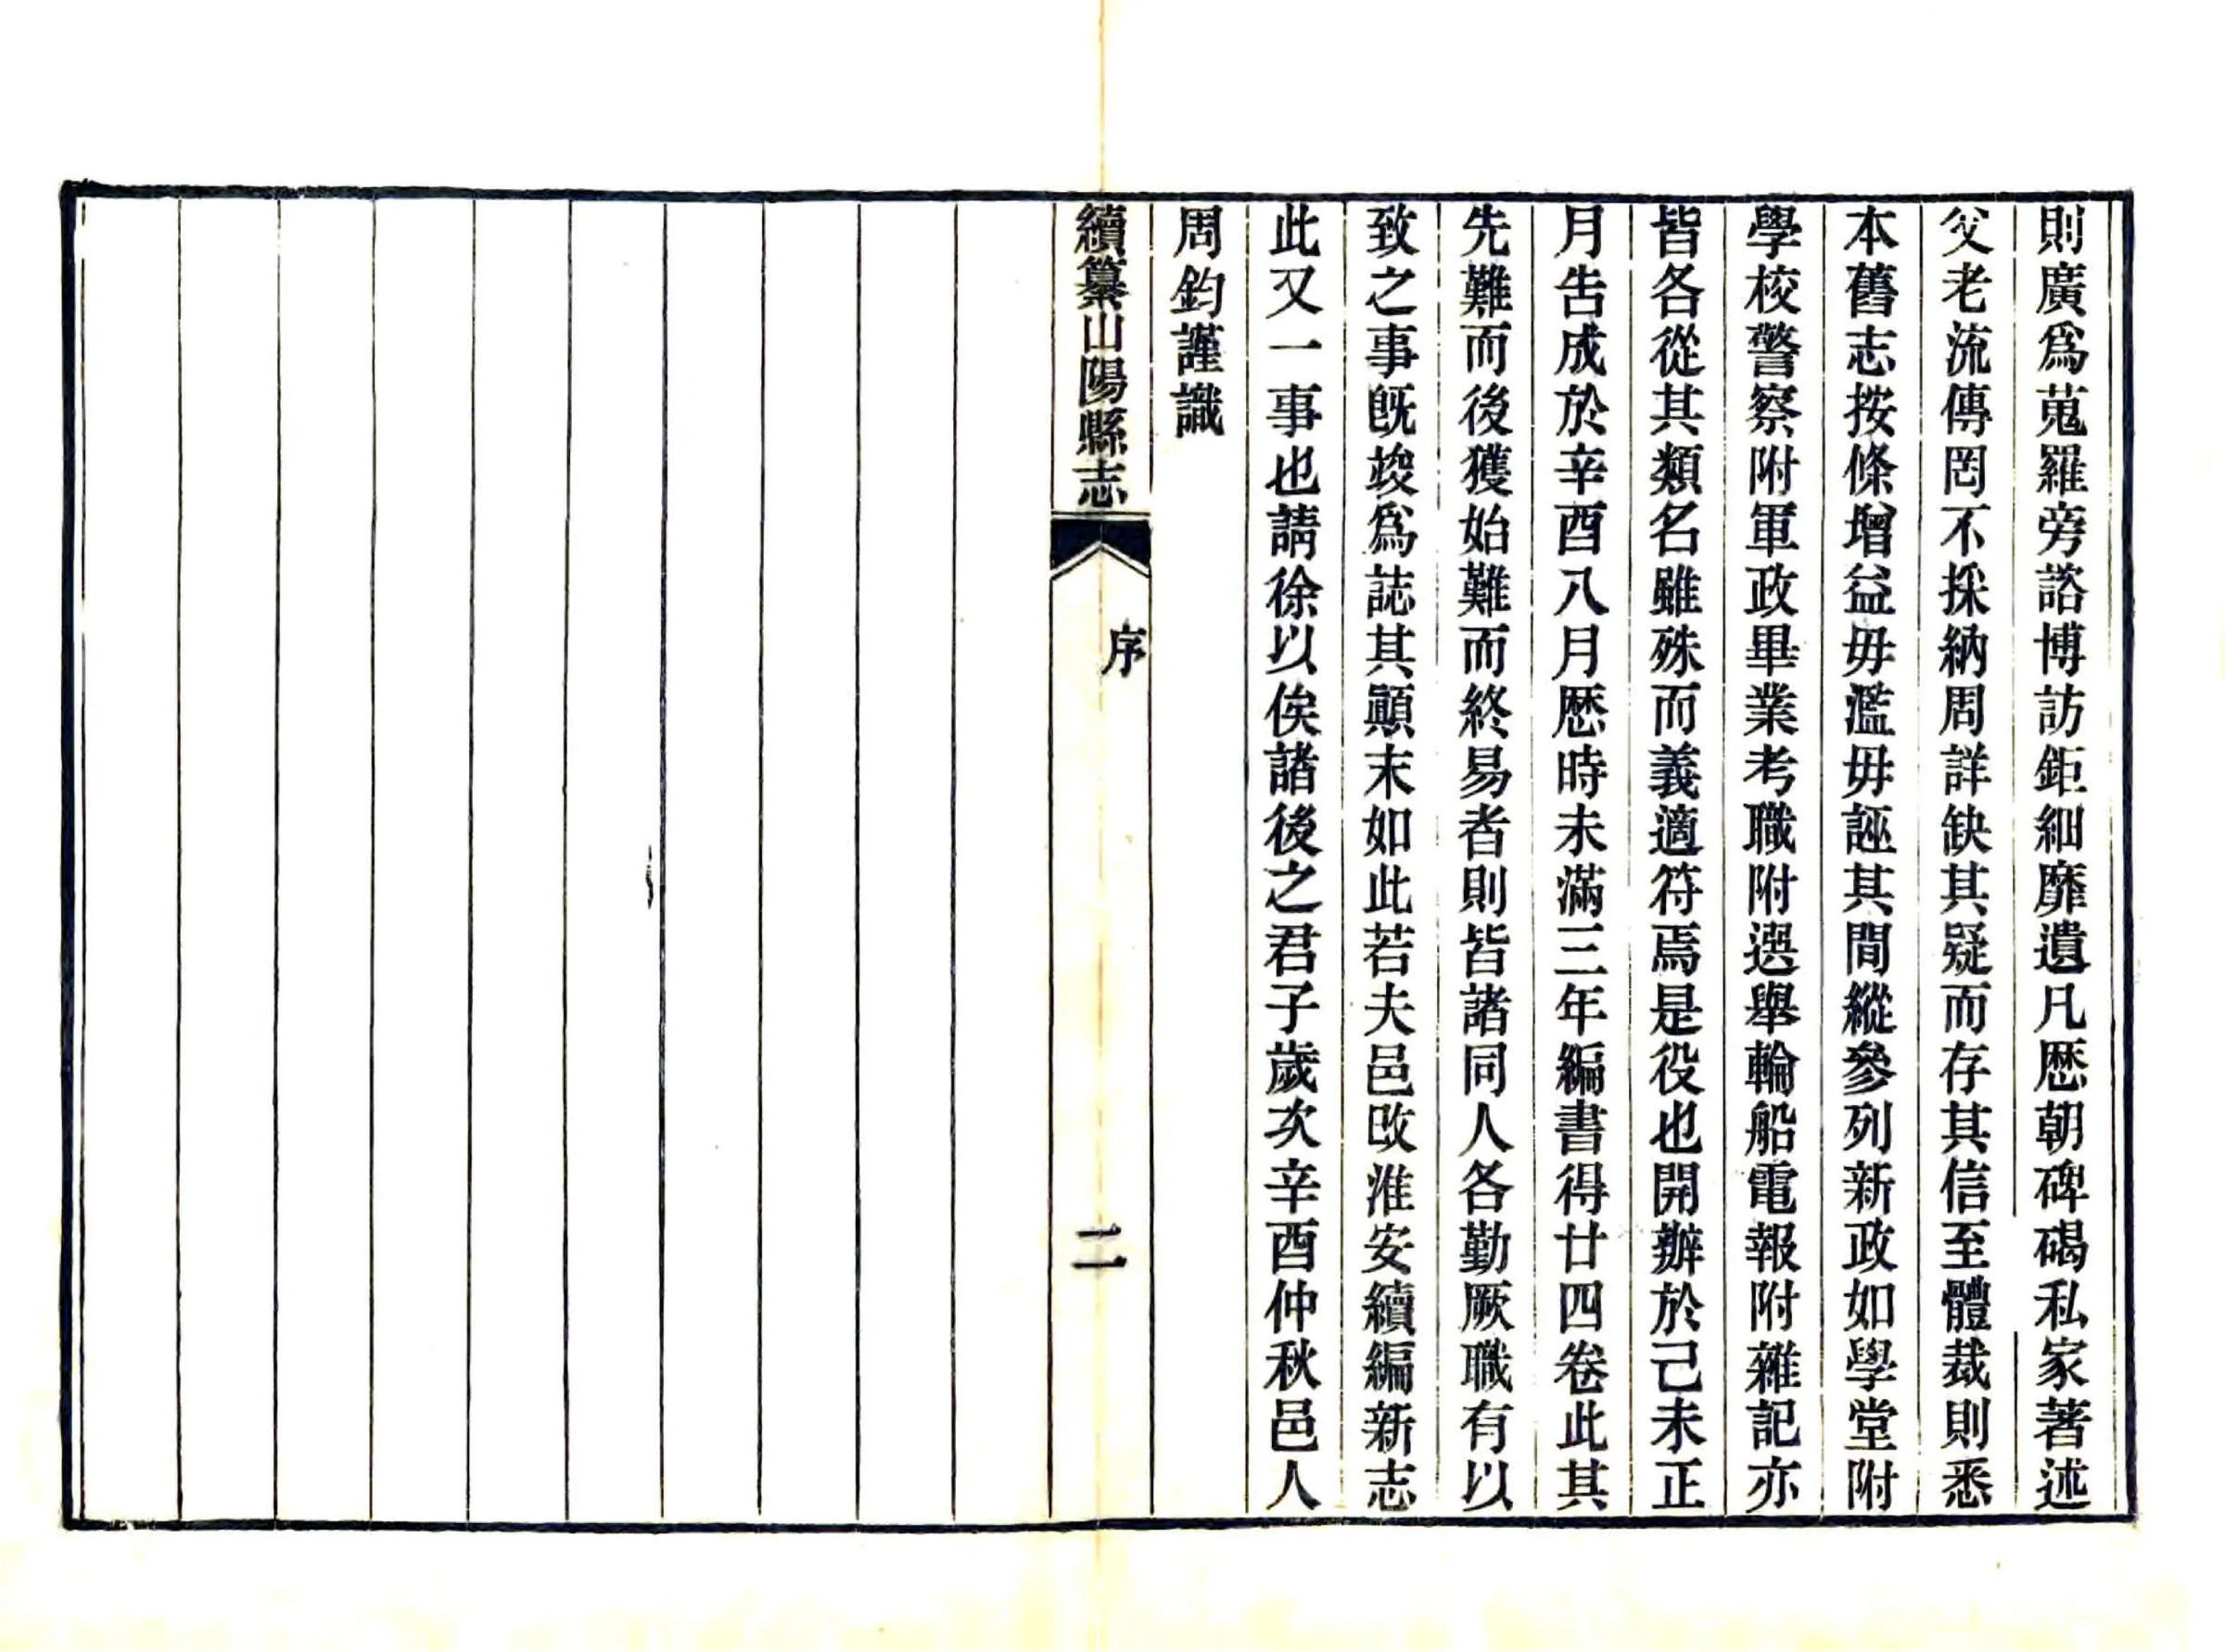 則廣爲蒐羅旁諮博訪鉅細靡遺凡歷朝碑碣私家著述
父老流傳罔不採納周詳缺其疑而存其信至體裁則悉
本舊志按條增益毋濫毋誣其間縱參列新政如學堂附
學校警察附軍政畢業考職附選舉輪船電報附雜記亦
皆各從其類名雖殊而義適符焉是役也開辦於己未正
月告成於辛酉八月歷時未滿三年編書得廿四卷此其
先難而後獲始難而終易者則皆諸同人各勤厥職有以
致之事既竣爲誌其顚末如此若夫邑改淮安續編新志
此又一事也請徐以俟諸後之君子歲次辛酉仲秋邑人
周鈞謹識
續纂山陽縣志
序
二